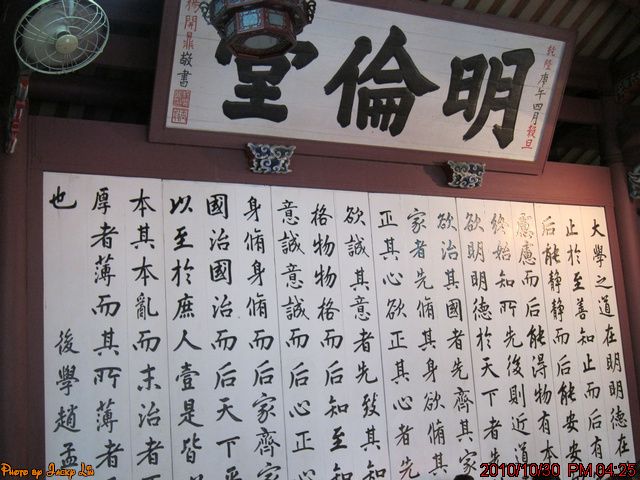 乾隆庚午四月穀旦
明倫堂
楊開鼎敬書
大學之道在明明德在
止於至善知止而后有
后能靜靜而后能安安
慮慮而后能得物有本
終始知所先後則近道
欲明明德於天下者先
欲治其國者先齊其
家者先脩其身欲脩其
正其心欲正其心者先
欲誠其意者先致其知
格物物格而后知至知
意誠意誠而后心正
身脩身脩而后家齊家
國治國治而后天下平
以至於庶人壹是皆
本其本亂而末治者
厚者薄而其所薄者
也
後學趙孟
Photo by Jackp Lin
2010/10/30 PM 04:25